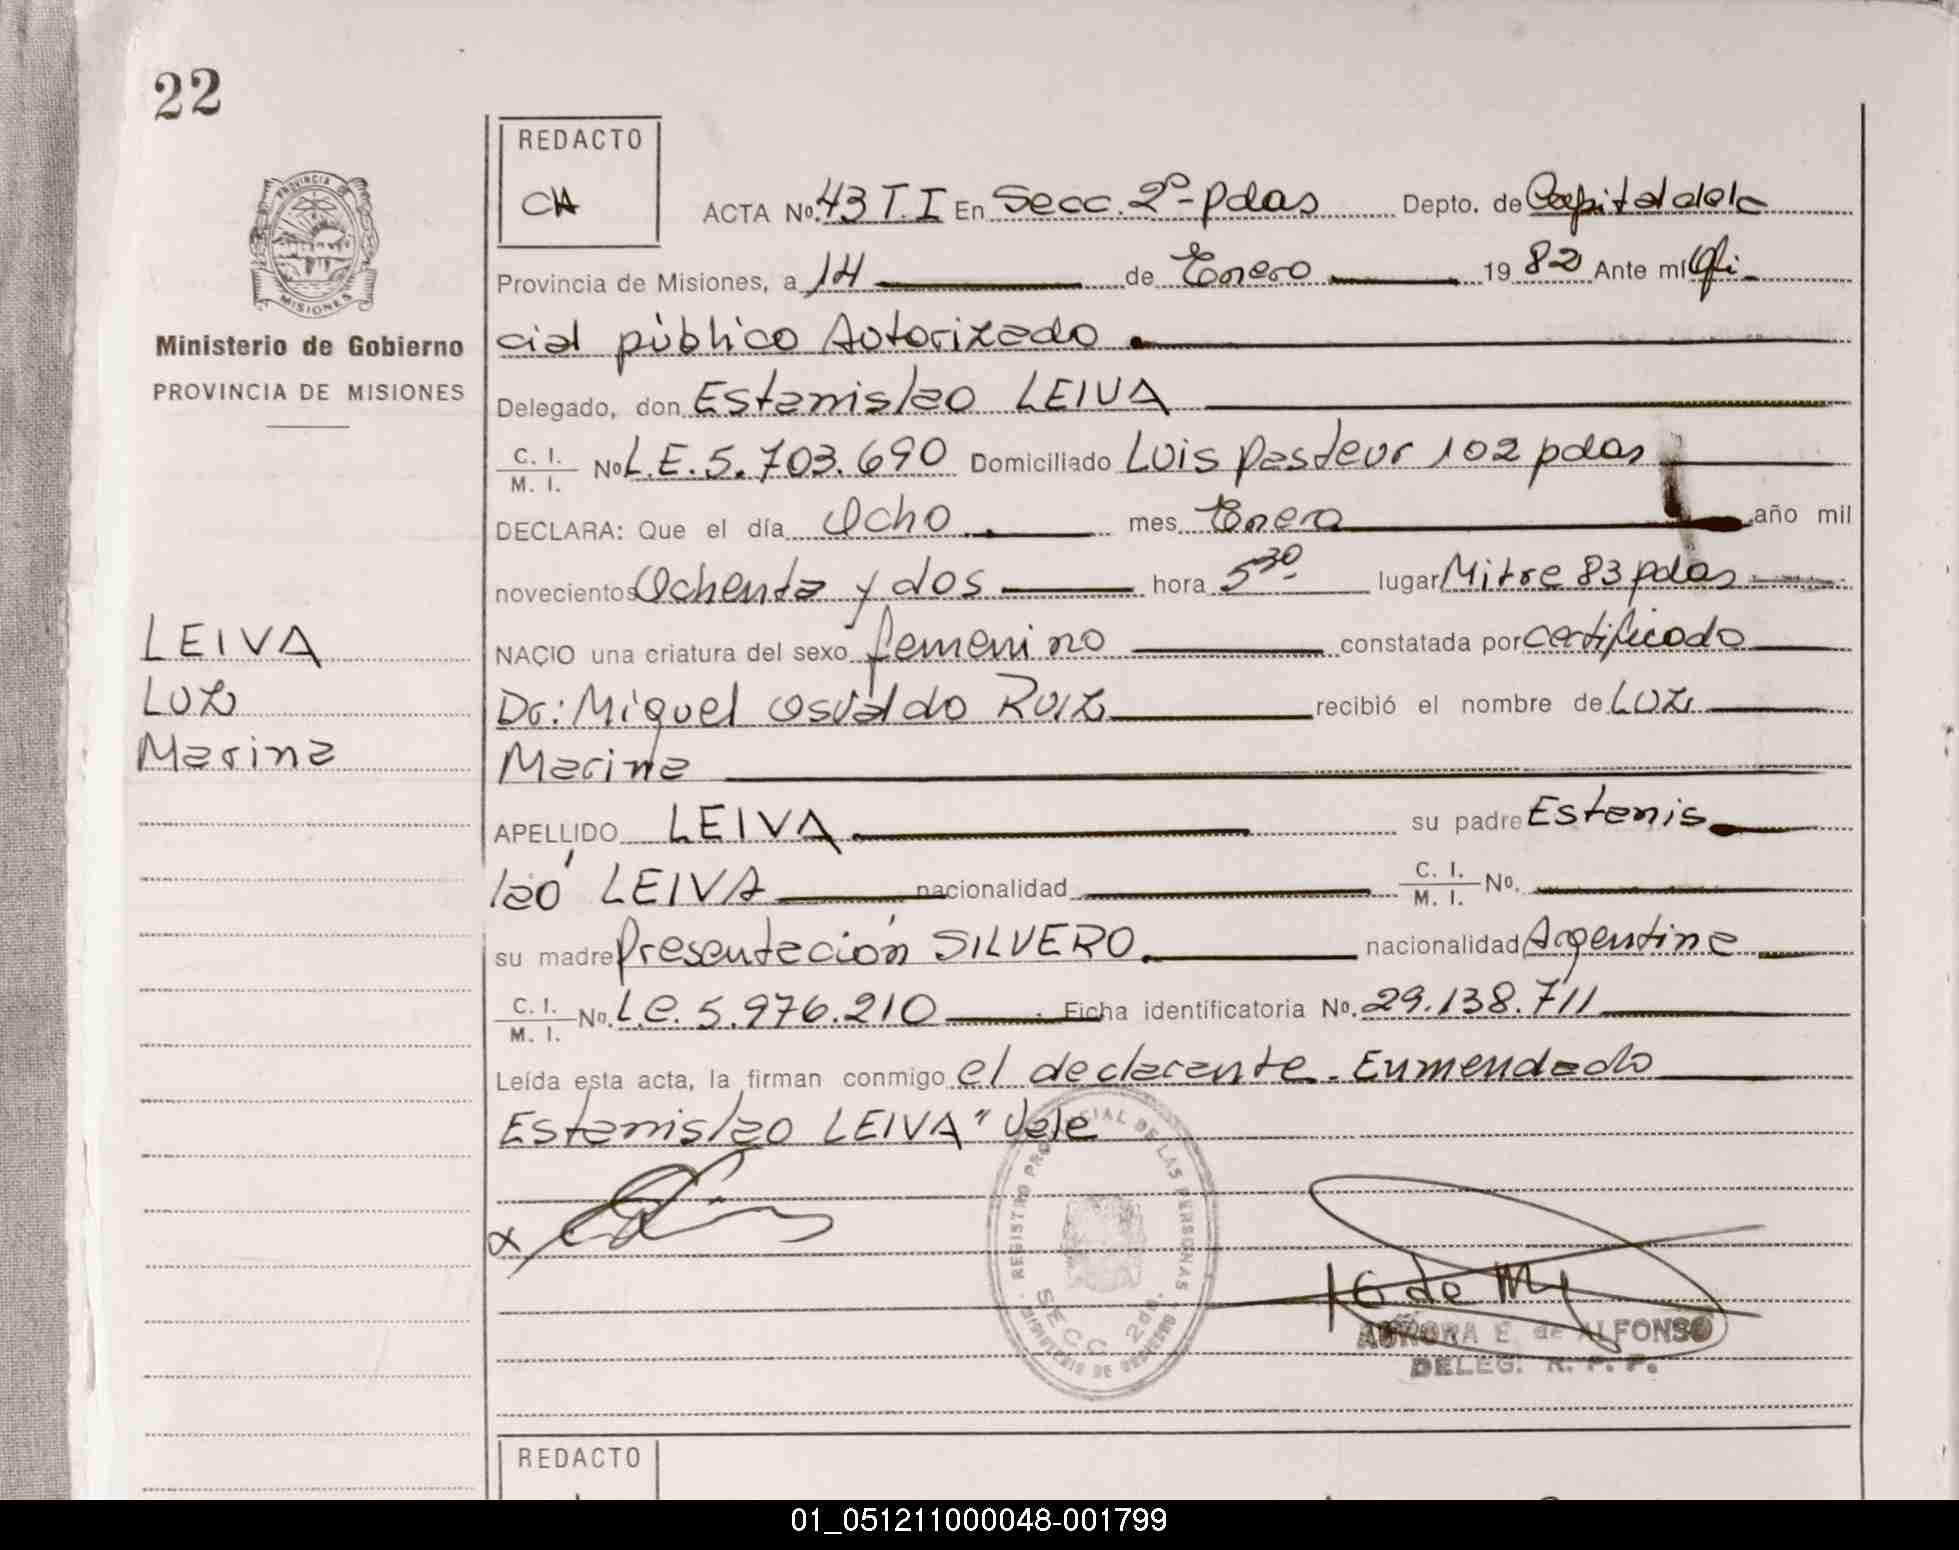 22
REDACTO
CH
ACTA No. 43 T.I En Secc. 2º - Pdas Depto. de Capital de la
Provincia de Misiones, a 14 de Enero 1982 Ante mi Ofi-
cial público Autorizado
Delegado, don Estanislao LEIVA
C. I. M. I. No L.E. 5.703.690 Domiciliado Luis Pasteur 102 pdas
DECLARA: Que el día Ocho mes Enero año mil
novecientos Ochenta y dos hora 5 30 lugar Mitre 83 pdas
NACIO una criatura del sexo femenino constatada por certificado
Dr: Miguel Osvaldo RUIZ recibió el nombre de LUZ
Marina
APELLIDO LEIVA su padre Estanis
lao LEIVA nacionalidad C. I. M. I. No.
su madre Presentación SILVERO nacionalidad Argentina
C. I. M. I. No. L.C. 5.976.210 Ficha identificatoria No. 29.138.711
Leída esta acta, la firman conmigo el declarante. Enmendado
Estanislao LEIVA" Vale
PROVINCIA DE MISIONES
Ministerio de Gobierno
PROVINCIA DE MISIONES
LEIVA
LUZ
Marina
REGISTRO PROVINCIAL DE LAS PERSONAS
SECC 2da.
MINISTERIO DE GOBIERNO
AURORA E. de ALFONSO
DELEG. R. P. P.
REDACTO
01_051211000048-001799